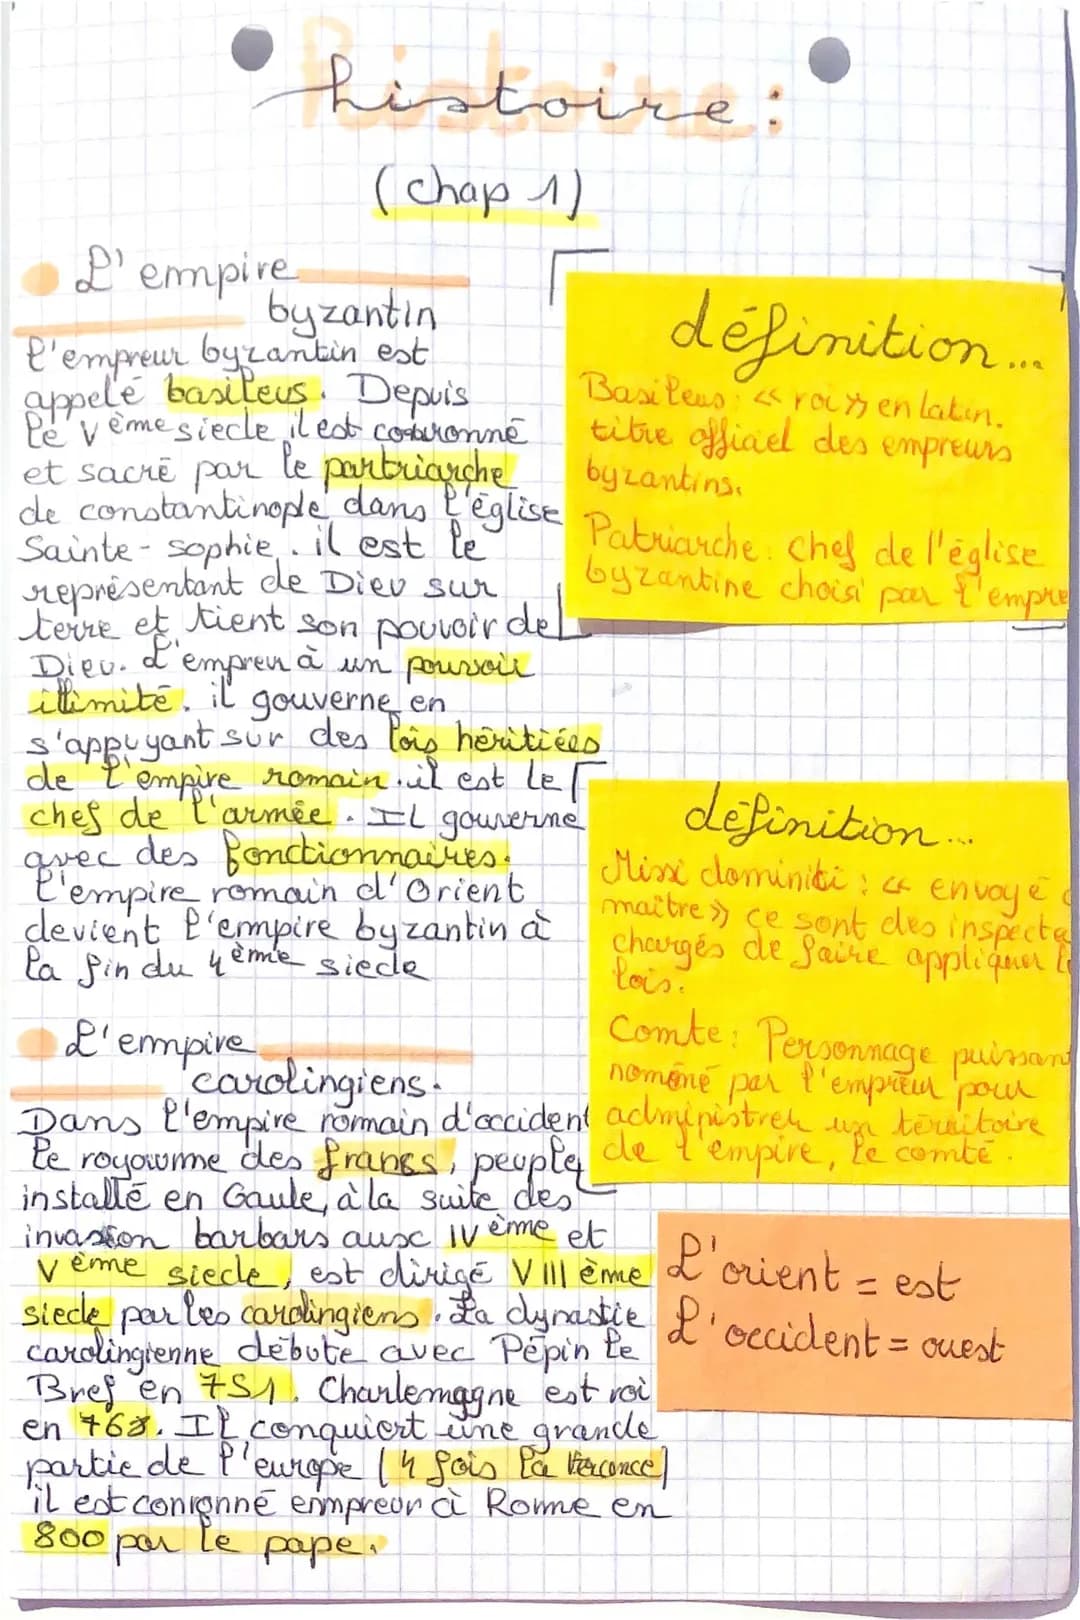 histoire:
(chap 1)
L'empire
byzantin
l'empreur byzantin est
appelé basileus. Depuis
le Vème siecle il est couronné
et sacré par le partriarche
de constantinople dans l'église
Sainte-sophie. il est le
représentant de Dieu sur
terre et tient son pouvoir de
Dieu. L'empreu à un pouvoir
illimité. il gouverne en
s'appuyant sur des lois héritiées
de l'empire romain. il est le
chef de l'armée. Il gouverne
avec des fonctionnaires.
l'empire romain d'Orient
devient l'empire byzantin à
la fin du 4ème siecle
définition...
Basileus: « roi » en latin.
titre officiel des empreurs
byzantins.
Patriarche: chef de l'église
byzantine choisi par l'empre
définition...
Missi dominiti: « envoyé
maître » ce sont des inspecte
chargés de faire appliquer le
lois.
Comte: Personnage puissan
nommé par l'empreur pour
administrer un térritoire
de l'empire, le comté.
L'empire
carolingiens.
Dans l'empire romain d'occident
le royaume des francs, peuple
installé en Gaule, à la suite des
invasion barbars aux IVème et
Vème siecle, est dirigé VIIIème
siecle par les carolingiens. La dynastie
carolingienne débute avec Pépin le
Bref en 751. Charlemagne est roi
en 768. Il conquiert une grande
partie de l'europe (4 fois la
il est conronné empreur à Rome en
800 par le pape.
L'orient = est
L'occident = ouest